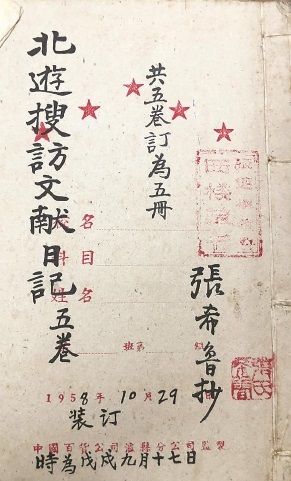 北遊搜訪文献日記五卷
共五卷訂為五冊
張希魯抄
名
科目
姓名
班第
1958年10月29日
装訂
中國百货公司
縣分公司監製
時為戊戌九月十七日